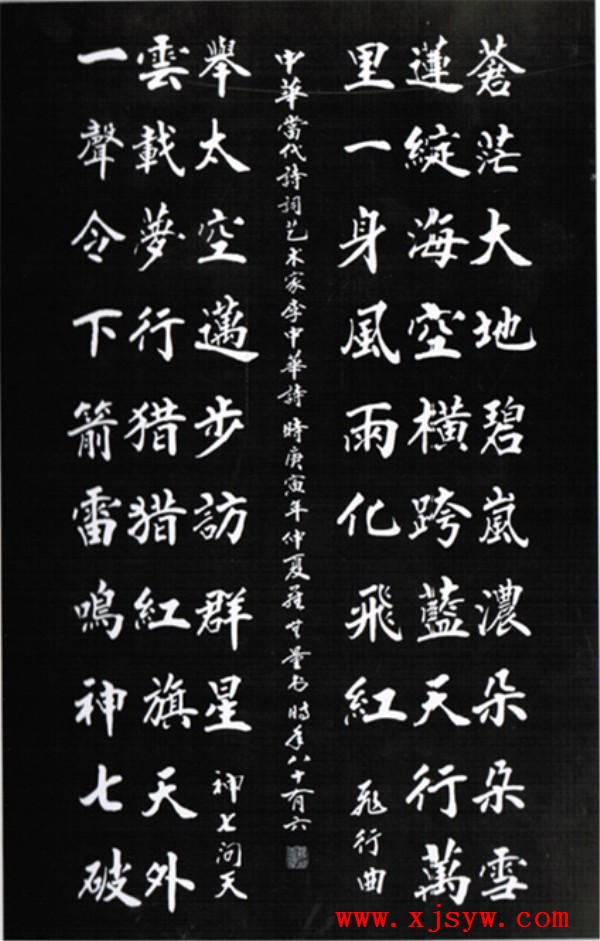 蒼茫大地碧嵐濃朵朵雪
蓮綻海空橫跨藍天行萬
里一身風雨化飛紅
飛行曲
一聲令下箭雷鳴神七破
雲載夢行猎猎紅旗天外
舉太空邁步訪群星
神七问天
中華當代詩詞艺术家李中華詩 時庚寅年仲夏 量书時年八十有六
www.xjsyw.com